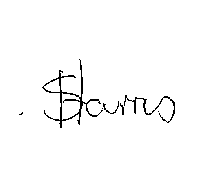 . SHarris